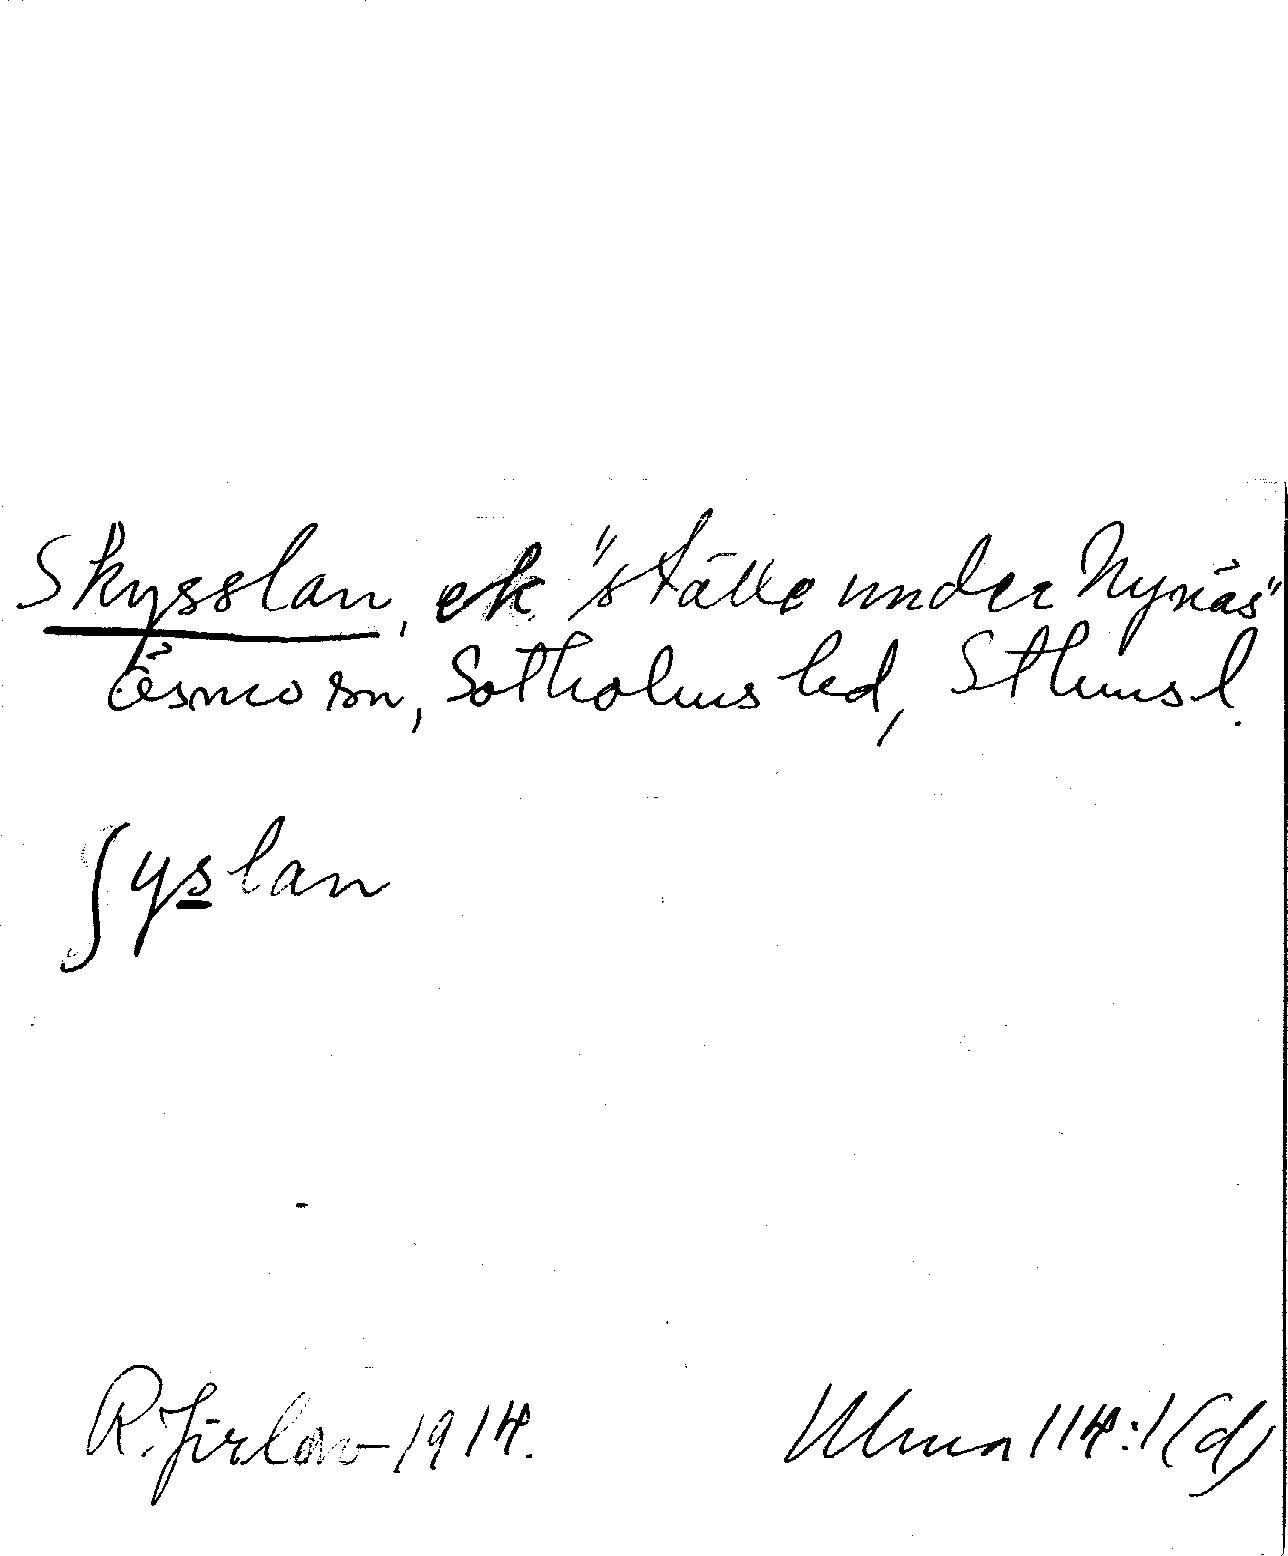 Skysslan, ek "ställe under Nynäs"
Ösmo sn, Sotholms hd, Sthms l.
ʃyslan
R. Jirlow 1914.
Ulma 114:1(d)